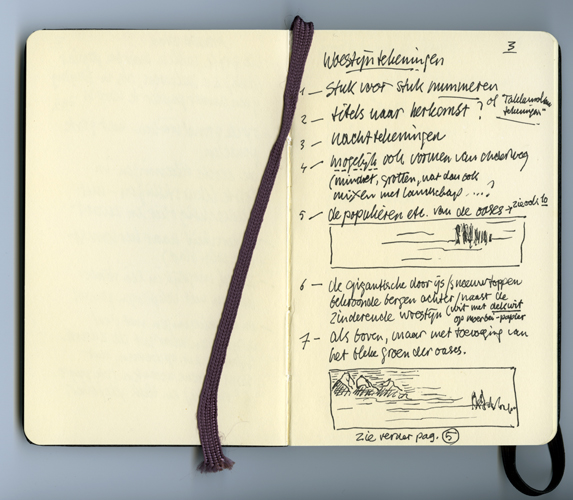 3
Woestijntekeningen
1 — stuk voor stuk nummeren
2 — titels naar herkomst? of "Taklamakan
tekeningen"
3 — nachttekeningen
4 — mogelijk ook vormen van onderweg
(minaret, grotten, wat dan ook
mixen met landschap ....?
5 — de populieren etc. van de oases → zie ook 10
6 — de gigantische door ijs/sneeuwtoppen
bekroonde bergen achter/naast de
zinderende woestijn (wit met dekwit
op moerbei-papier
7 — als boven, maar met toevoeging van
het bleke groen der oases.
zie verder pag. 5